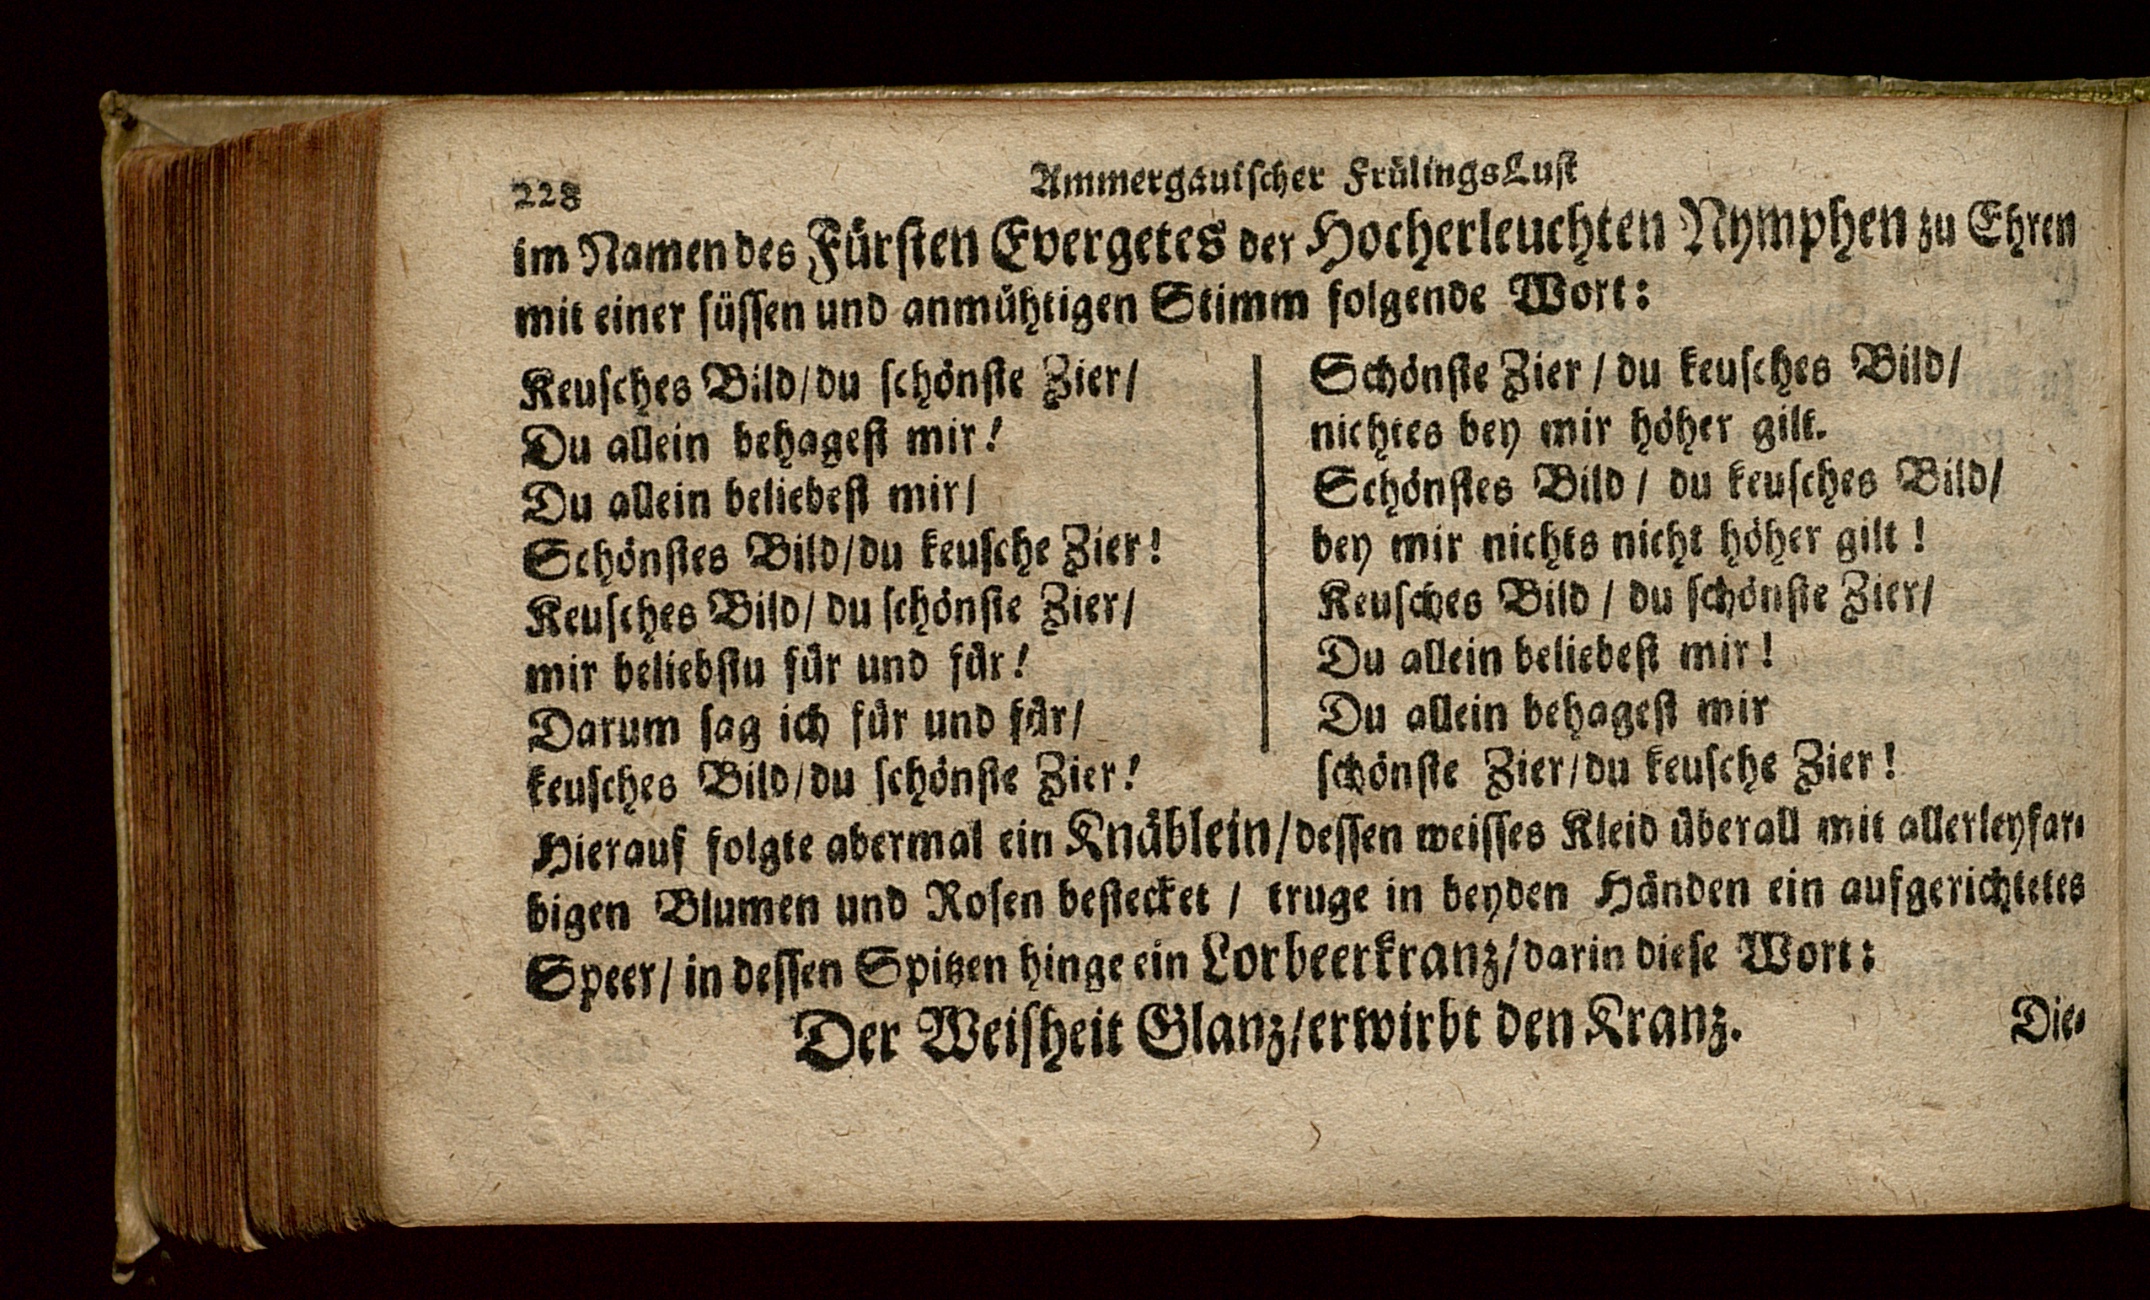 228
Ammergäuischer FrülingsLust
im Namen des Fürsten Evergetes der Hocherleuchten Nymphen zu Ehren
mit einer süssen und anmühtigen Stimm folgende Wort:
Keusches Bild/du schönste Zier/
Du allein behagest mir!
Du allein beliebest mir/
Schönstes Bild/du keusche Zier!
Keusches Bild/ du schönste Zier/
mir beliebstu für und für!
Darum sag ich für und für/
keusches Bild/du schönste Zier!
Schönste Zier / du keusches Bild/
nichtes bey mir höher gilt.
Schönstes Bild / du keusches Bild/
bey mir nichts nicht höher gilt!
Keusches Bild / du schönste Zier/
Du allein beliebest mir!
Du allein behagest mir
schönste Zier/du keusche Zier!
Hierauf folgte abermal ein Knäblein/dessen weisses Kleid überall mit allerleyfar-
bigen Blumen und Rosen bestecket / truge in beyden Händen ein aufgerichtetes
Speer/ in dessen Spitzen hinge ein Lorbeerkranz/darin diese Wort:
Der Weisheit Glanz/erwirbt den Kranz.
Die-